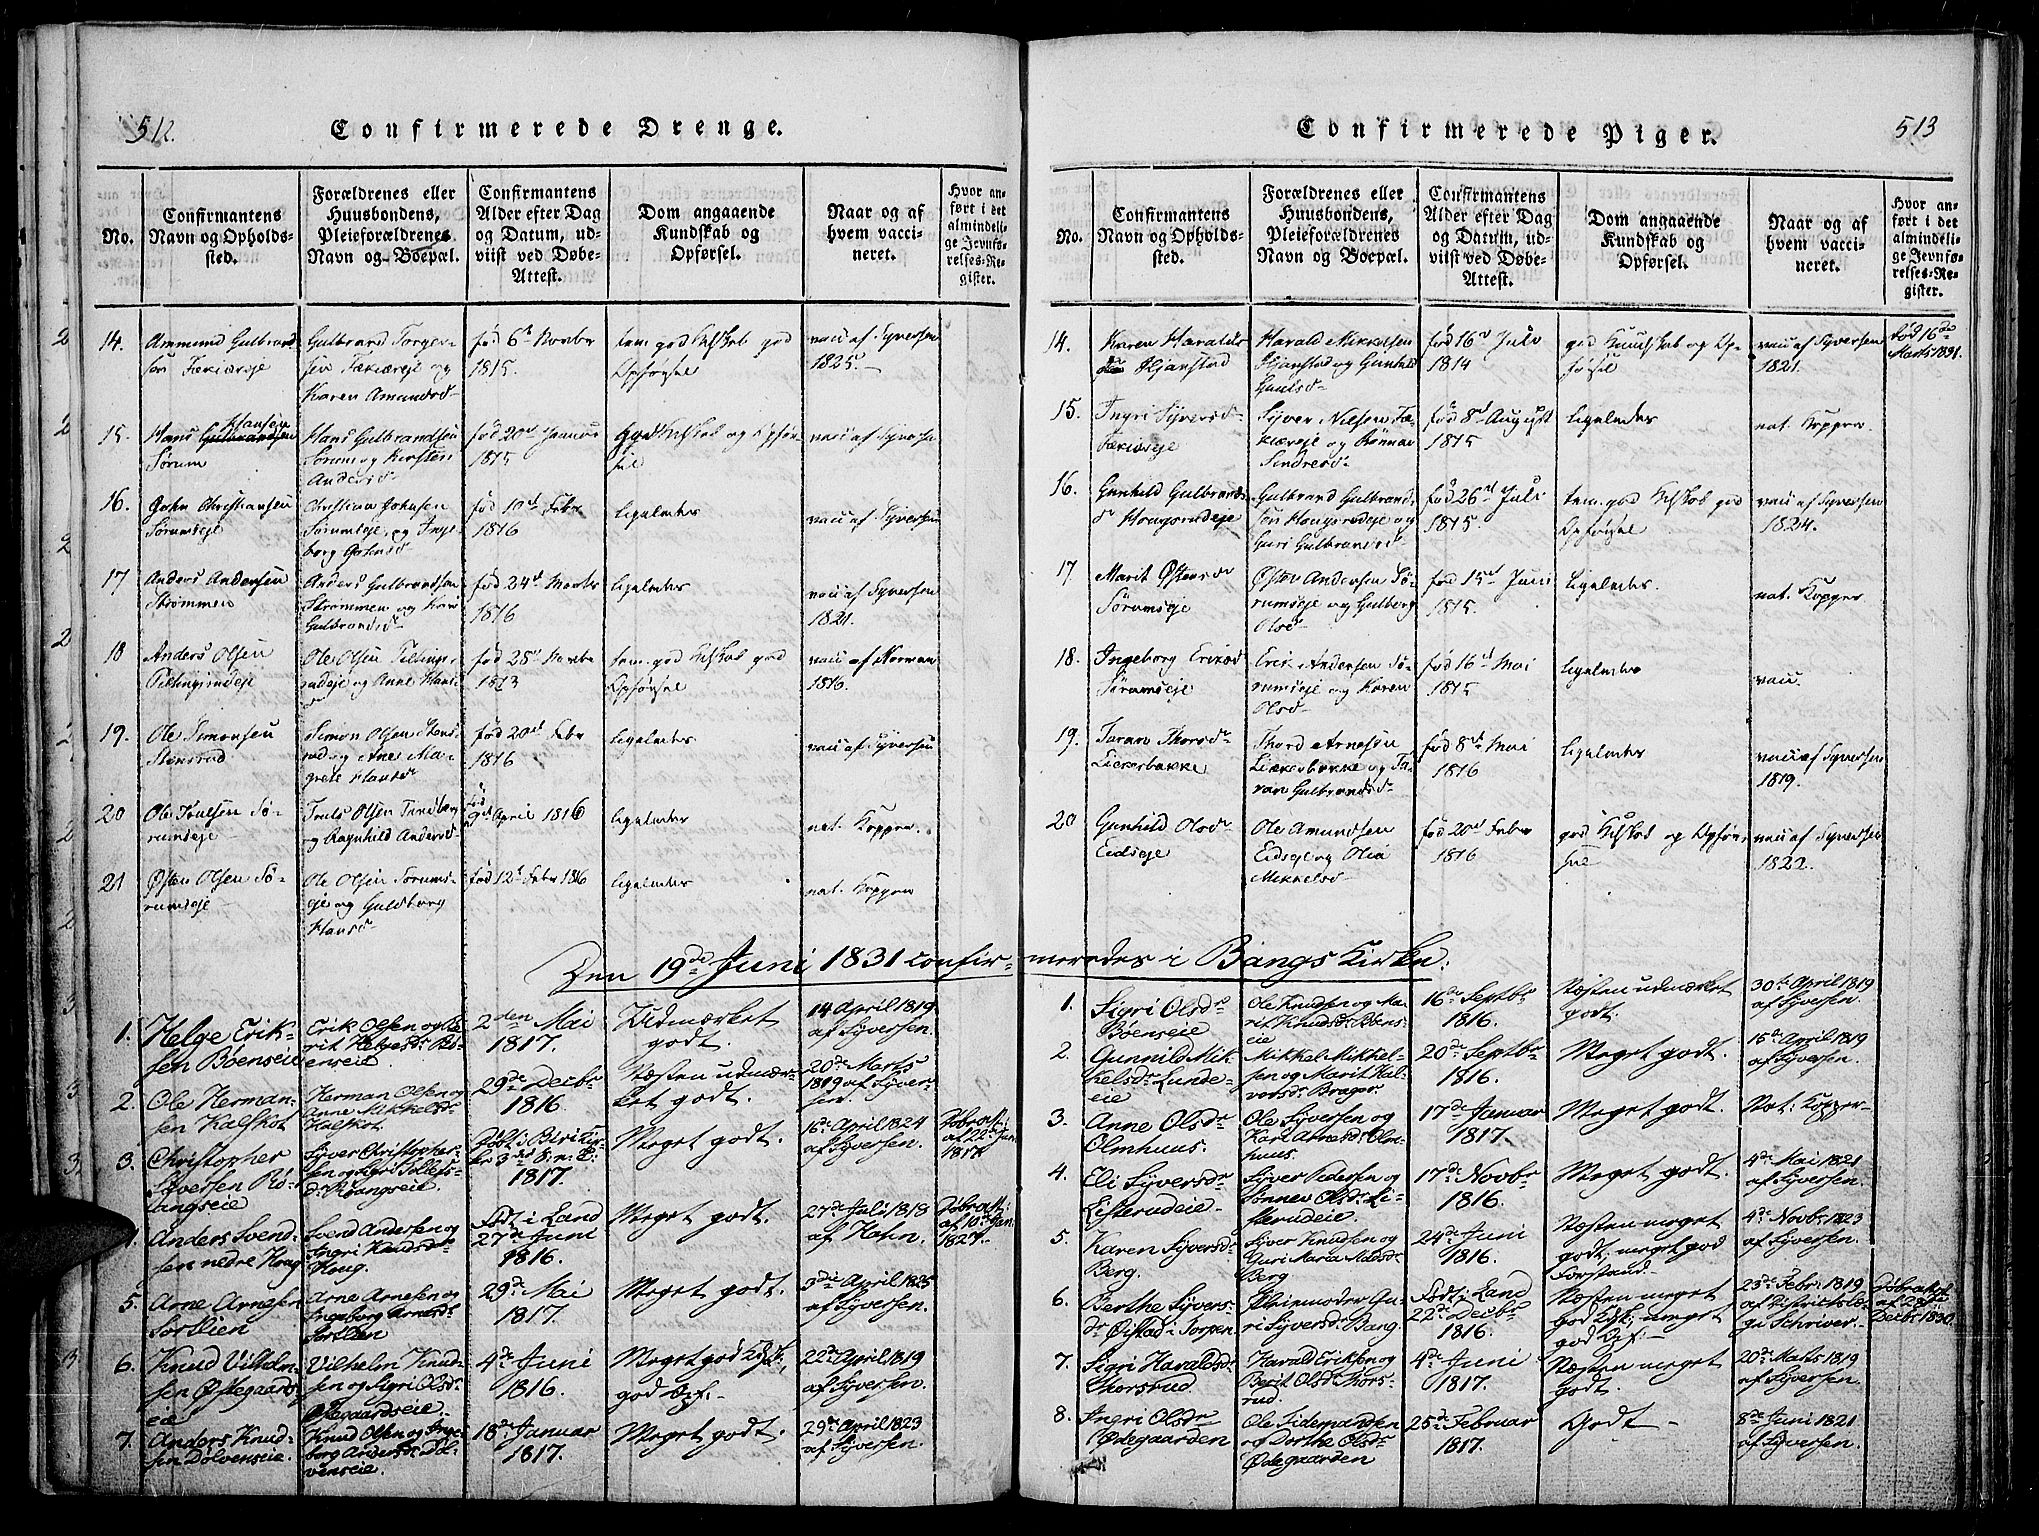 512.
Confirmerede Drenge.
No.
Confirmantens
Navn og Opholds-
sted.
Forældrenes eller
Huusbondens,
Pleieforældrenes
Navn og Boepæl.
Confirmantens
Alder efter Dag
og Datum, ud-
viist ved Døbe-
Attest.
Dom angaaende
Kundskab og
Opførsel.
Naar og af
hvem vacci-
neret.
Hvor an-
ført i det
almindeli-
ge Jevnfø-
relses-Re-
gister.
14.
Ammund Gulbrand
sen
Gulbrand Torger-
sen
Karen Amundsd
fød 6te Novbr
1815
tem. god Kdskab god
Opførsel
vacc af Syversen
1825.
15.
Hans Hansen
Gulbrandsen
Sørum
Hans Gulbrandsen
Sørum og Kirsten
Andersd
fød 20de Januar
1815
god Kdskab og Opfør-
sel
vacc af Syversen
16.
John Christiansen
Sørumseje
Christian Johnsen
Sørumseje og Inge-
borg
fød 10de Febr
1816
ligeledes
vacc af Syversen
17
Anders Andersen
Strømmen
Anders Gulbrandsen
Strømmen og Kari
Gulbrandsd
fød 24de Novbr
1816
ligeledes
vacc af Syversen
1821.
18
Anders Olsen
Ole Olsen
og Anne Hans-
fød 25de Novbr
1813
tem. god Kdskab god
Opførsel
vacc af Norman
1816.
19.
Ole Simonsen
Stensrud
Simon Olsen Stens-
rud og Ane Mar-
grete Hansd
fød 20de Febr
1816
ligeledes
vacc af Syversen
20
Ole Troelsen Sø-
rumseje
Truls Olsen
og Ragnhild Andersd
fød
9de April 1816
ligeledes
nat. Kopper.
21
Østen Olsen Sø-
rumseje
Ole Olsen Sørums-
eje og Guldborg
Hansd
fød 12te Febr 1816
ligeledes
nat. Kopper
Den 19de Juni 1831 confirmeredes i Bangs Kirke:
1.
Helge Erik-
sen Bøenseie
Erik Olsen og Be-
rit Helgesdr. Bø-
enseie.
2den Mai
1817.
Udmærket
godt.
14 April 1819
af Syversen.
2.
Ole Herman-
sen Kalskot
Herman Olsen og
Anne Mikkelsdr.
Kalskot
29de Decbr
1816.
Næsten udmær-
ket godt.
20de Marts
1819 af Syver-
sen.
3.
Christopher
Syversen Rø-
angseie
Syver Christopher-
sen og Sigri Tollefs-
dr. Røangseie.
Født i Biri
1817.
Meget godt.
16de April 1824
af Syversen.
Døbeatt:
af 22de Jan
4.
Anders Svend-
sen nedre Houg
Svend Andersen og
Ingri Knudsdr.
Houg.
Født i Land
27de Juni
1816.
Meget godt.
27de Juli 1818
af Hahn.
Døbeatt:
af 10de Jan
1827.
5.
Arne Arnesen
Sortlien
Arne Arnesen og
Ingeborg Arnesdr.
Sortlien
29de Mai
1817.
Meget godt.
9de April 1825
af Syversen.
6.
Knud Vilhelm-
sen Østegaards-
eie
Vilhelm Knud-
sen og Sigri Olsdr.
Østegaardseie.
4de Juni
1816.
Meget god Kdsk.,
god Opf.
22de April 1819
af Syversen.
7.
Anders Knud-
sen Dølvenseie
Knud Olsen og Inge-
borg Andersdr. Døl-
venseie.
18de Januar
1817.
Meget godt.
29de April 1823
af Syversen.
513
Confirmerede Piger.
No.
Confirmantens
Navn og Opholds-
sted.
Forældrenes eller
Huusbondens,
Pleieforældrenes
Navn og Boepæl.
Confirmantens
Alder efter Dag
og Datum, ud-
viist ved Døbe-
Attest.
Dom angaaende
Kundskab og
Opførsel.
Naar og af
hvem vacci-
neret.
Hvor an-
ført i det
almindeli-
ge Jevnfø-
relses-Re-
gister.
14.
Karen Haralds
Hjanstad
Harald Mikkelsen
Hjanstad og Gunhild
fød 16de Juli
1814
god Kundskab og Op-
førsel
vacc af Syversen
1821.
fød 16de
Marts 1831.
15.
Ingri Syversd
Syver Nielsen
og Rønnau
Sindresd
fød 8de August
1815
ligeledes
nat. Kopper.
16.
Gunhild Gulbrands
d Hougsrudeje
Gulbrand Gulbrand-
sen Hougsrudeje og
Guri Gulbrandsd
fød 26de Juli
1815.
tem. god Kdskab god
Opførsel
vacc af Syversen
1824.
17
Marit Østensd
Sørumseje
Østen Andersen Sø-
rumseje og Gulborg
Olsd
fød 15de Juni
1815.
ligeledes.
nat. Kopper
18.
Ingeborg Eriksd
Sørumseje
Erik Andersen Sø-
rumseje og Karen
Olsd
fød 16de Mai
1815
ligeledes
vacc.
19.
Taran Thorsd
Liekerbakke
Thord Arnesen
Liekerbakke og Ta-
ran Gulbrandsd
fød 8de Mai
1816
ligeledes
vacc af Syversen
1819.
20
Gunhild Olsd
Eidseje
Ole Amundsen
Eidseje og Olia
Mikkelsd
fød 20de Febr
1816
god Kdskab og Opfør-
sel
vacc af Syversen
1822.
1.
Sigri Olsdr.
Bøenseie
Ole Knudsen og Ma-
rit Knudsdr. Bøens-
eie
16de Septbr
1816.
Næsten udmærket
godt.
30te April 1819
af Syversen.
2.
Gunnild Mik-
kelsdr. Lunde-
eie
Mikkel Mikkel-
sen og Marit Hal-
vorsdr. Brager
20de Septbr
1816.
Meget godt.
15de April 1819
af Syversen.
3.
Anne Olsdr.
Olmhuus.
Ole Syversen og
Kari Arnesdr. Olm-
huus.
17de Januar
1817.
Meget godt.
Nat. Kopper.
4.
Eli Syversdr.
Listerudeie.
Syver Pedersen og
Rønnev Olsdr. Li-
sterudeie.
17de Novbr
1816.
Meget godt.
4de Mai 1821
af Syversen.
5.
Karen Syversdr.
Berg.
Syver Knudsen og
Guri Maria Nilsdr.
Berg
24de Juni
1816.
Næsten meget
godt, meget god
Forstand.
4de Novbr 1823
af Syversen.
6.
Berthe Syvers-
dr. Øistad i Torpen
Pleiemoder Gu-
ri Syversdr. Bang.
Født i Land
22de Decbr
1816.
Næsten meget
god Kdsk., meget
god Opf.
23de Febr. 1819
af Districtslæ-
ge Schriver.
Døbeattest
af 29de
Decbr 1830.
7.
Sigri Haraldsdr.
Thorsrud.
Harald Eriksen og
Berit Olsdr. Thors-
rud.
4de Juni
1817.
Næsten meget
godt.
20de Marts 1819
af Syversen.
8.
Ingri Olsdr.
Ødegaarden
Ole Sidemandsen
og Dorthe Olsdr.
Ødegaarden
25de Februar
1817.
Godt
8de Juni 1821
af Syversen.